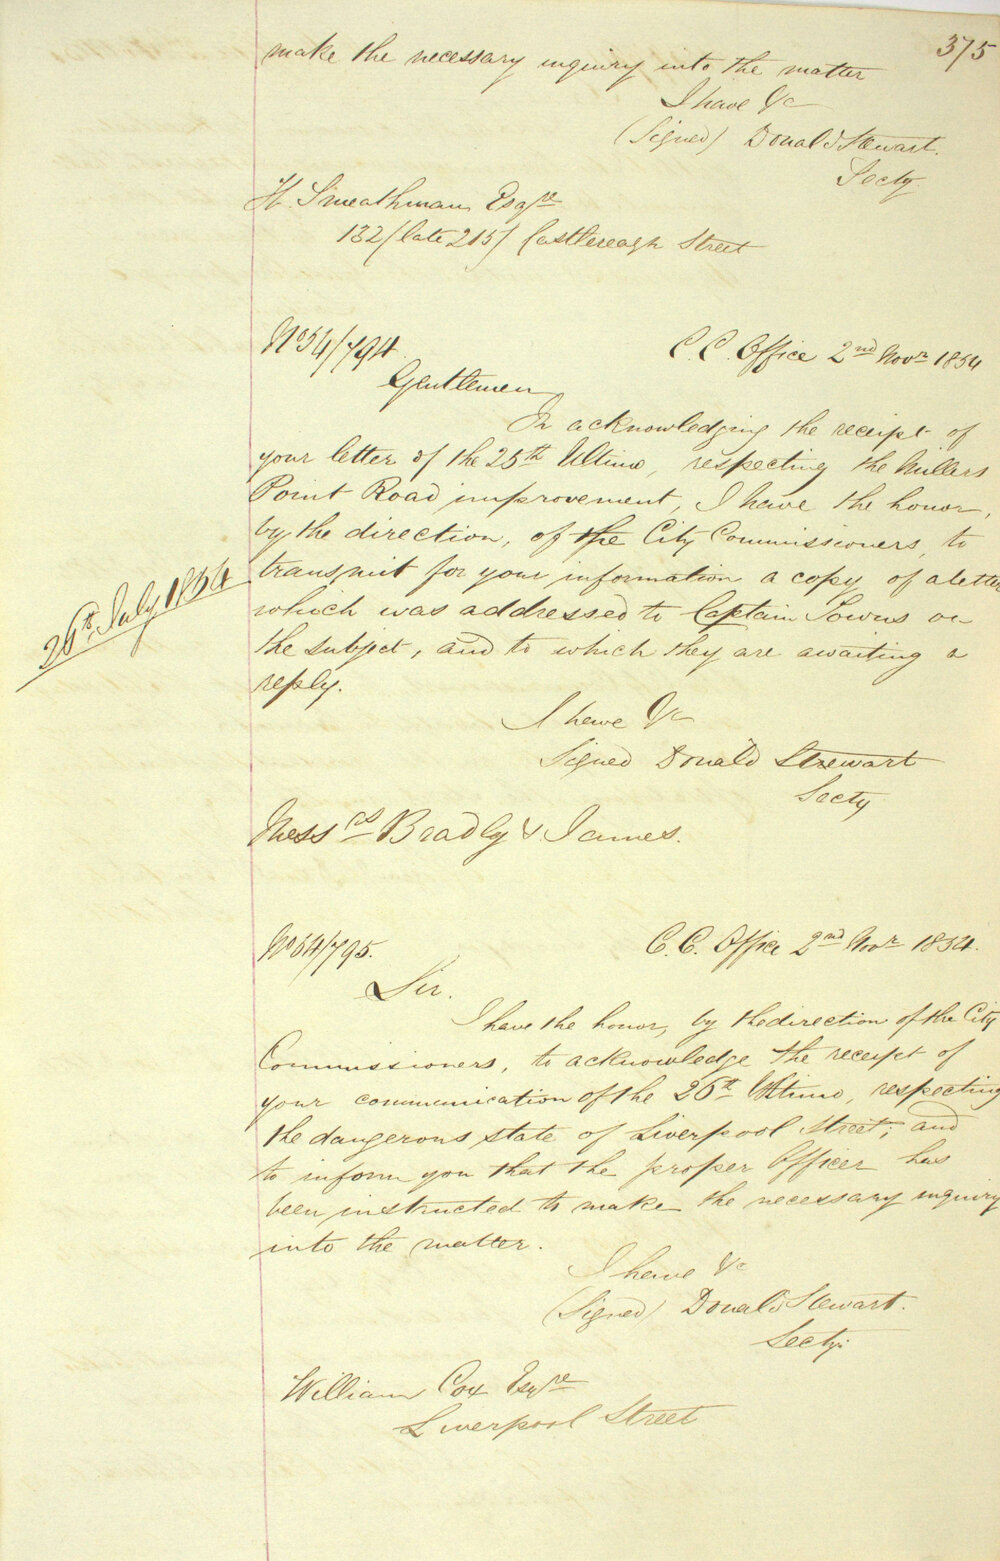 375
make the necessary inquiry into the matter
I have &c
(Signed) Donald Stewart.
Secty
H. Smeathman Esqre
132 (late 215) Castlereagh Street
No 54/794.
C. C. Office 2nd Novr 1854
Gentlemen
In acknowledging the receipt of
your letter of the 25th Ultimo, respecting the Millers
Point Road improvement, I have the honor,
by the direction, of the City Commissioners, to
transmit for your information a copy of a letter
26th July 1854
which was addressed to Captain Towns on
the subject, and to which they are awaiting a
reply.
I have &c
Signed Donald Stewart
Secty
Messrs Bradly & James.
No 54/795.
C. C. Office 2nd Novr 1854.
Sir.
I have the honor, by the direction of the City
Commissioners, to acknowledge the receipt of
your communication of the 26th Ultimo, respecting
the dangerous state of Liverpool Street; and
to inform you that the proper Officer has
been instructed to make the necessary inquiry
into the matter.
I have &c
(Signed) Donald Stewart.
Secty.
William Cox Esqre
Liverpool Street